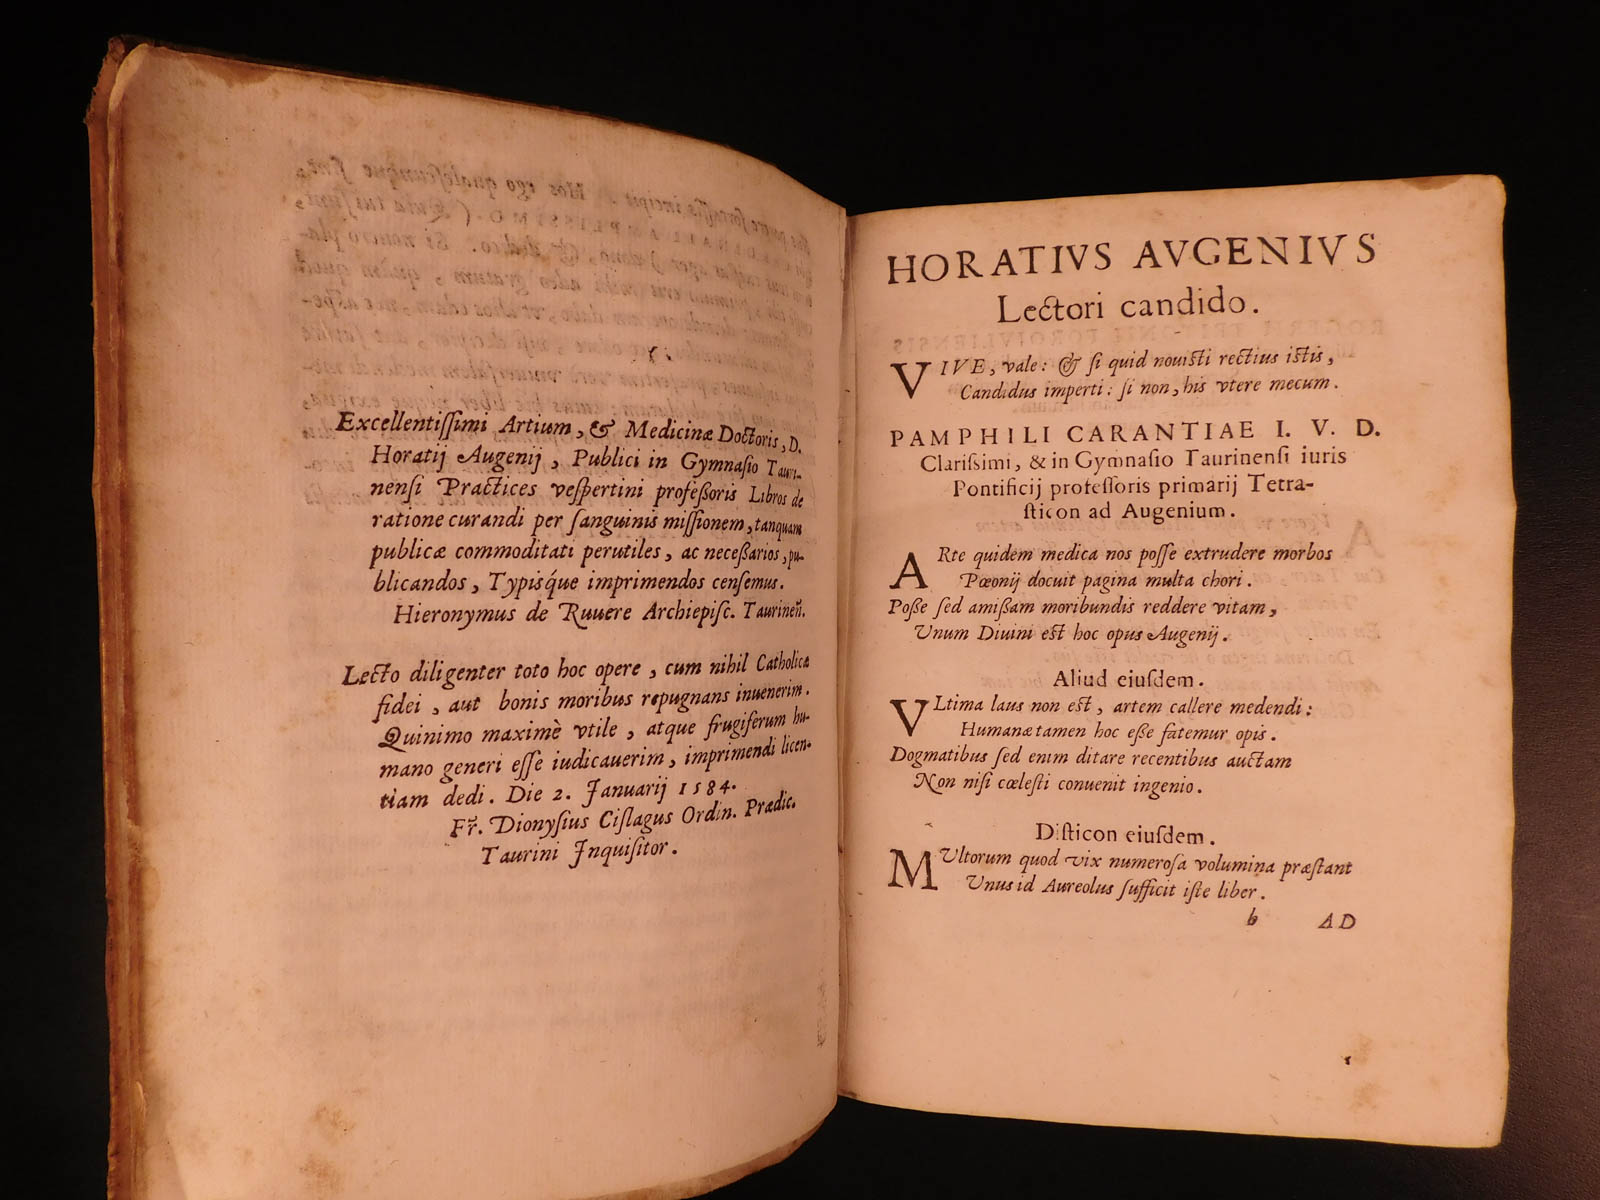 Excellentiſſimi Artium, & Medicinæ Doctoris, D.
Horatij Augenij, Publici in Gymnaſio Tauri-
nenſi Practices veſpertini profeßoris Libros de
ratione curandi per ſanguinis miſſionem, tanquam
publicæ commoditati perutiles, ac neceßarios, pu-
blicandos, Typiśque imprimendos cenſemus.
Hieronymus de Ruuere Archiepiſc. Taurineñ.
Lecto diligenter toto hoc opere, cum nihil Catholicæ
fidei, aut bonis moribus repugnans inuenerim.
Quinimo maximè vtile, atque frugiferum hu-
mano generi eſſe iudicauerim, imprimendi licen-
tiam dedi. Die 2. Januarij 1584.
Fr. Dionyſius Ciſlagus Ordin. Prædic.
Taurini Inquiſitor.
HORATIVS AVGENIVS
Lectori candido.
VIVE, vale: & ſi quid nouiſti rectius iſtis,
Candidus imperti: ſi non, his vtere mecum.
PAMPHILI CARANTIAE I. V. D.
Clariſſimi, & in Gymnaſio Taurinenſi iuris
Pontificij profeſſoris primarij Tetra-
ſticon ad Augenium.
ARte quidem medica nos poſſe extrudere morbos
Pæonij docuit pagina multa chori.
Poße ſed amißam moribundis reddere vitam,
Unum Diuini eſt hoc opus Augenij.
Aliud eiuſdem.
VLtima laus non eſt, artem callere medendi:
Humanætamen hoc eße fatemur opis.
Dogmatibus ſed enim ditare recentibus auctam
Non niſi cœleſti conuenit ingenio.
Diſticon eiuſdem.
MUltorum quod vix numeroſa volumina præſtant
Unus id Aureolus ſufficit iſte liber.
b AD